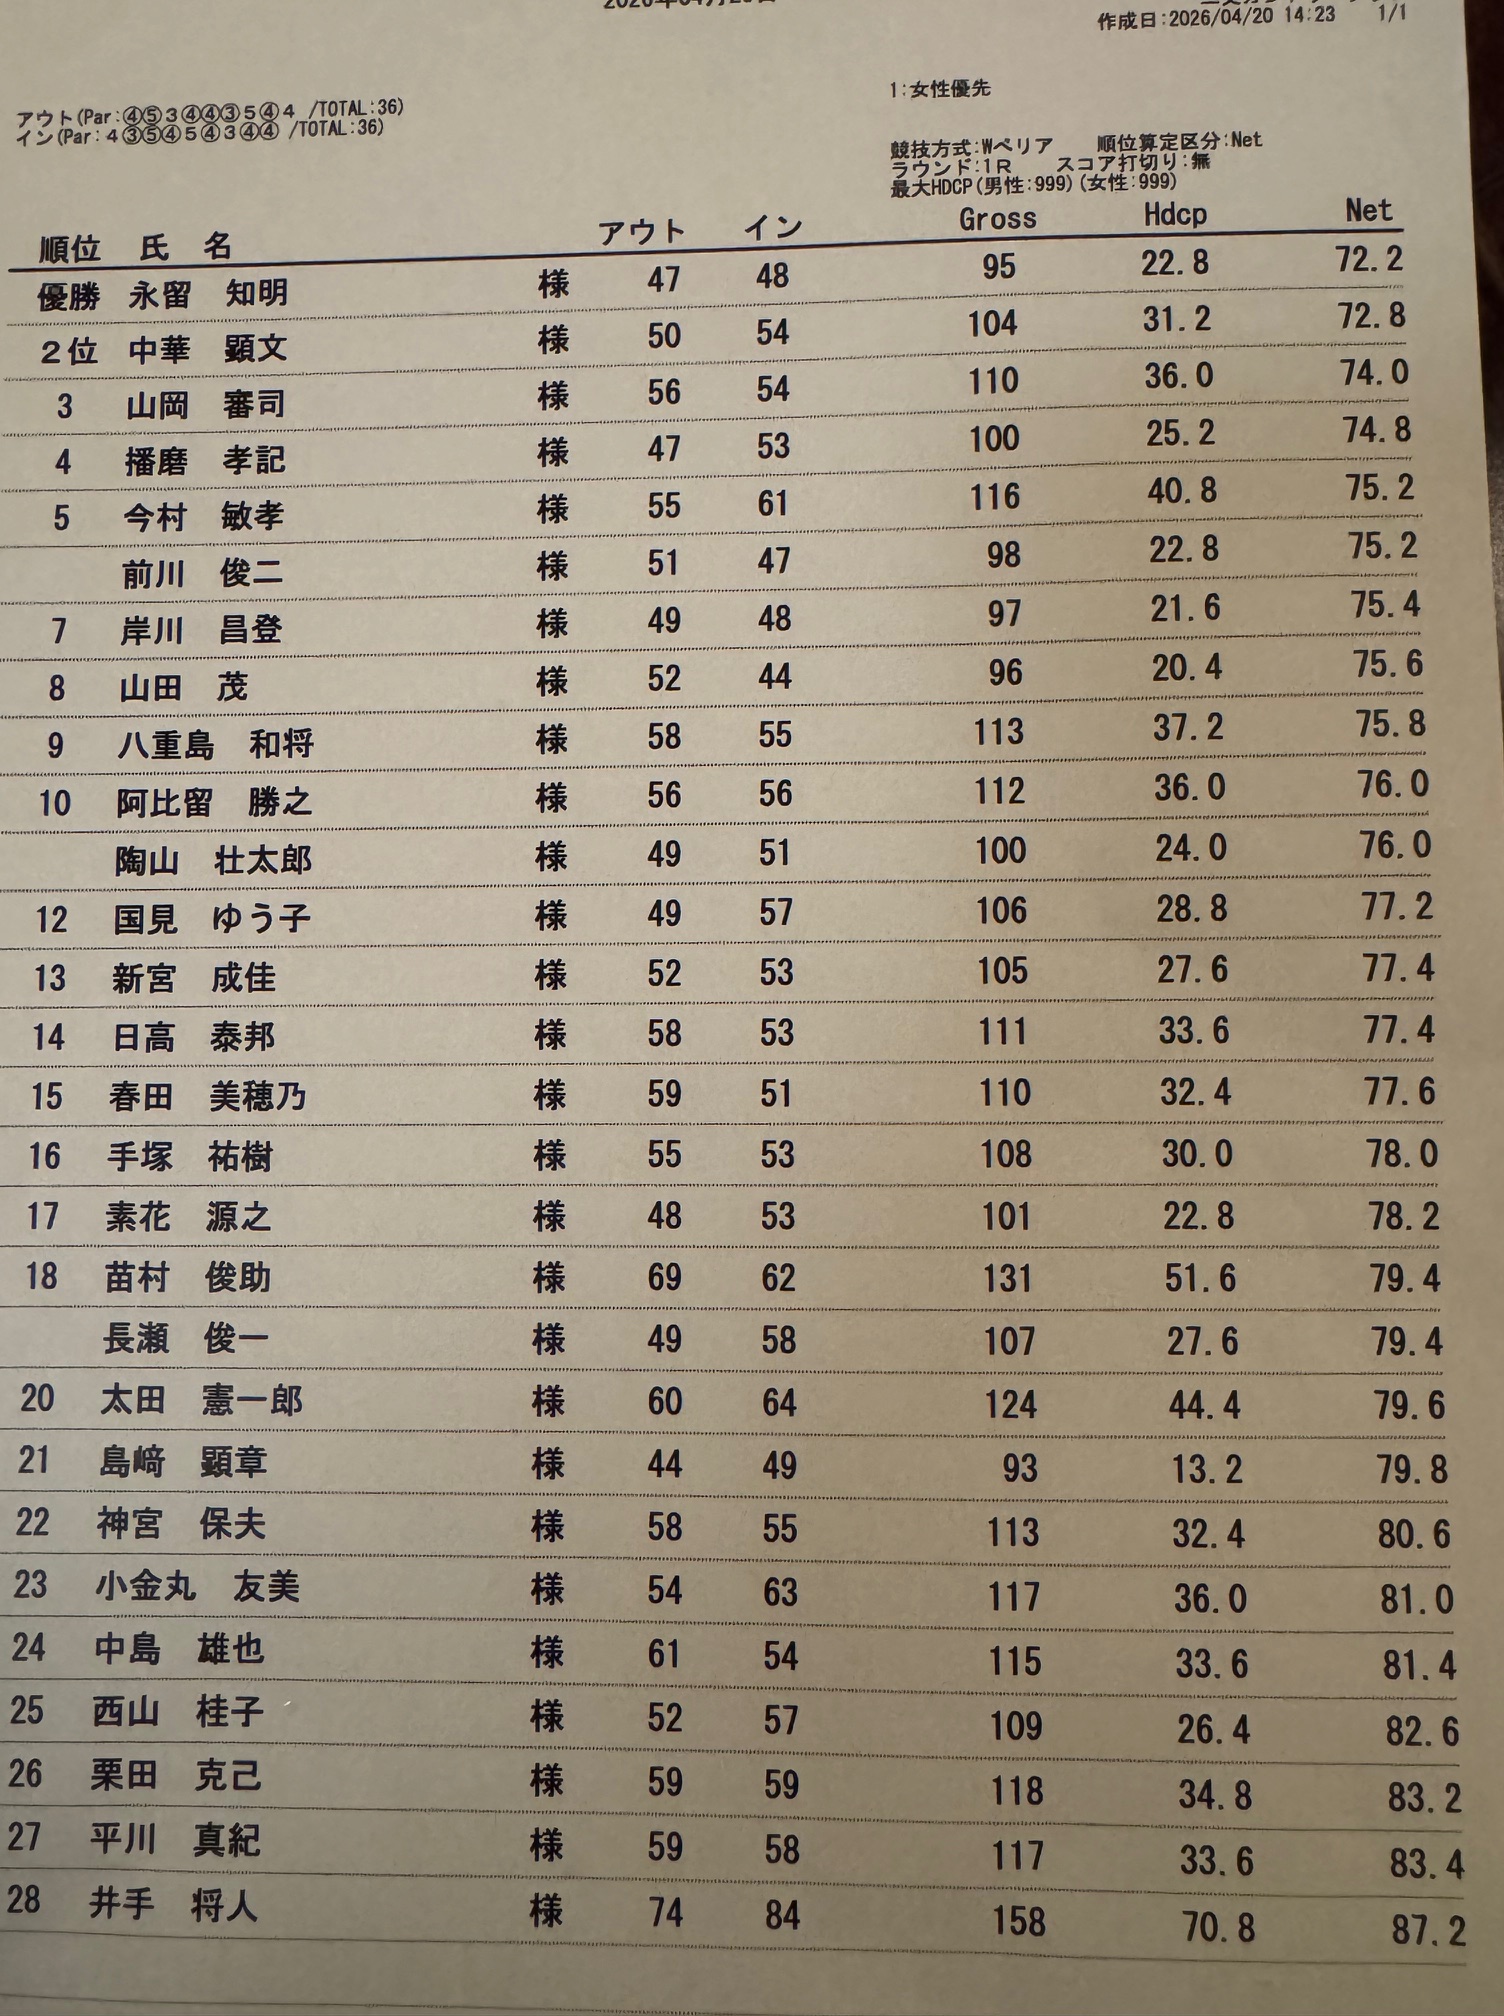 作成日:2026/04/20 14:23 1/1
1:女性優先
アウト(Par:④⑤3④④③5④4 /TOTAL:36)
イン(Par:4③⑤④5④3④④ /TOTAL:36)
競技方式:Wペリア 順位算定区分:Net
ラウンド:1R スコア打切り:無
最大HDCP(男性:999)(女性:999)
順位 氏 名 アウト イン Gross Hdcp Net
優勝 永留 知明 様 47 48 95 22.8 72.2
2位 中華 顕文 様 50 54 104 31.2 72.8
3 山岡 審司 様 56 54 110 36.0 74.0
4 播磨 孝記 様 47 53 100 25.2 74.8
5 今村 敏孝 様 55 61 116 40.8 75.2
前川 俊二 様 51 47 98 22.8 75.2
7 岸川 昌登 様 49 48 97 21.6 75.4
8 山田 茂 様 52 44 96 20.4 75.6
9 八重島 和将 様 58 55 113 37.2 75.8
10 阿比留 勝之 様 56 56 112 36.0 76.0
陶山 壮太郎 様 49 51 100 24.0 76.0
12 国見 ゆう子 様 49 57 106 28.8 77.2
13 新宮 成佳 様 52 53 105 27.6 77.4
14 日高 泰邦 様 58 53 111 33.6 77.4
15 春田 美穂乃 様 59 51 110 32.4 77.6
16 手塚 祐樹 様 55 53 108 30.0 78.0
17 素花 源之 様 48 53 101 22.8 78.2
18 苗村 俊助 様 69 62 131 51.6 79.4
長瀬 俊一 様 49 58 107 27.6 79.4
20 太田 憲一郎 様 60 64 124 44.4 79.6
21 島﨑 顕章 様 44 49 93 13.2 79.8
22 神宮 保夫 様 58 55 113 32.4 80.6
23 小金丸 友美 様 54 63 117 36.0 81.0
24 中島 雄也 様 61 54 115 33.6 81.4
25 西山 桂子 様 52 57 109 26.4 82.6
26 栗田 克己 様 59 59 118 34.8 83.2
27 平川 真紀 様 59 58 117 33.6 83.4
28 井手 将人 様 74 84 158 70.8 87.2